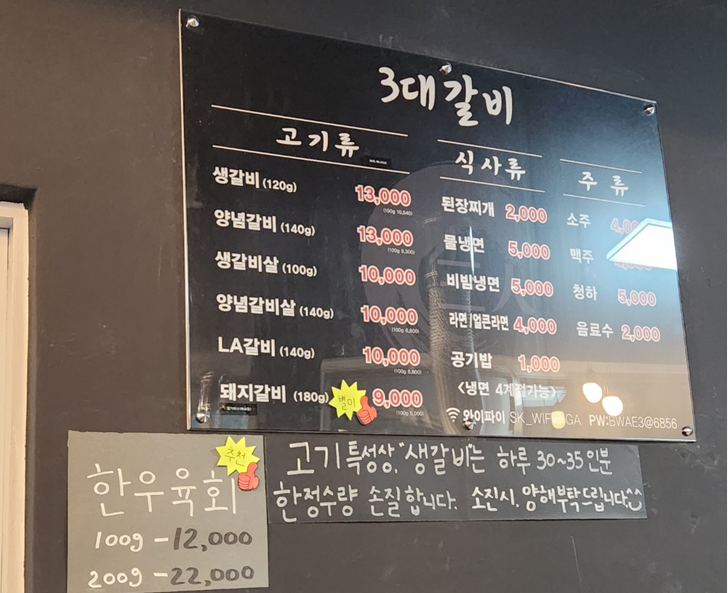 3대갈비
고기류
생갈비 (120g) 13,000
(100g 10,840)
양념갈비 (140g) 13,000
(100g 9,300)
생갈비살 (100g) 10,000
양념갈비살 (140g) 10,000
LA갈비 (140g) 10,000
돼지갈비 (180g) 별미 9,000
(100g 5,000)
식사류
된장찌개 2,000
물냉면 5,000
비빔냉면 5,000
라면/얼큰라면 4,000
공기밥 1,000
<냉면 4계절가능>
주류
소주
맥주
청하 5,000
음료수 2,000
와이파이 SK_WIF GA PW:BWAE3@6856
추천
한우육회
100g - 12,000
200g - 22,000
고기특성상, "생갈비"는 하루 30~35인분
한정수량 손질합니다. 소진시, 양해부탁드립니다^^